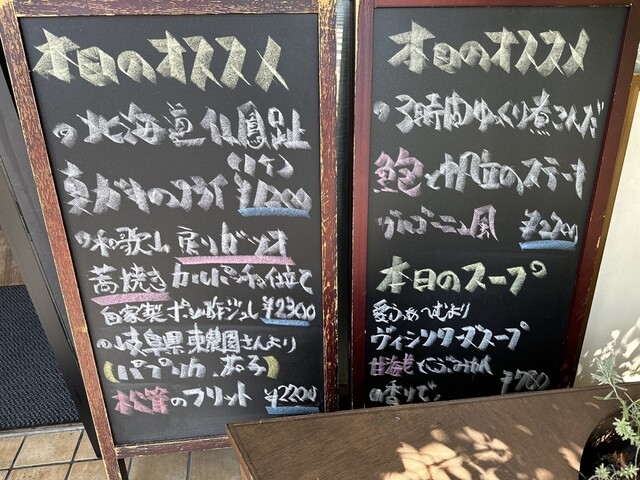 本日のオススメ
の北海道仙鳳趾
(1ケ)
真がきのフライ ¥1200
の和歌山 戻りガツオ
藁焼き カルパッチョ仕立て
自家製ポン酢ジュレ ¥2300
の岐阜県東農園さんより
(パプリカ 茄子)
松茸のフリット ¥2200
本日のオススメ
の3時間ゆっくり煮こんだ
鮑と帆立のステーキ
ブルゴーニュ風 ¥2200
本日のスープ
愛ふぁーむより
ヴィシソワーズスープ
甘海老
の香りで。 ¥780